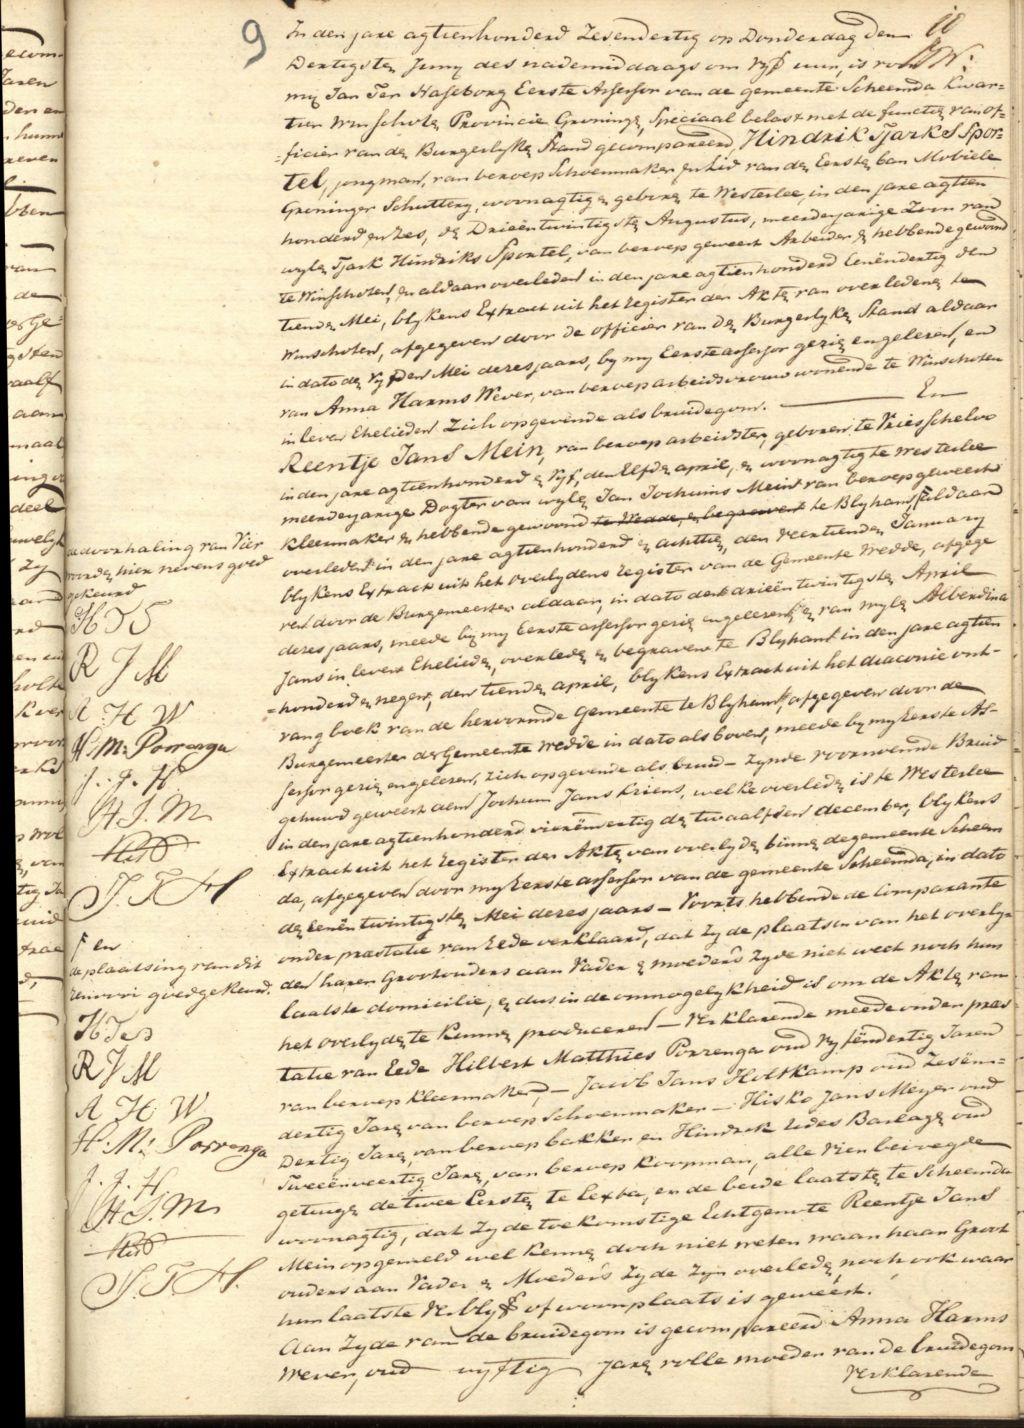 9
In den jare agtienhonderd Zesendertig op Donderdag den
Dertigsten Juny des nademiddaags om vyf uur, is voor
my Jan Ter Haseborg Eerste Assessor van de gemeente Scheemda Kwar=
tier Winschoten Provincie Groningen, Speciaal belast met de functien van of=
=ficier van den Burgerlyken Stand gecompareerd, Hindrik Tjarks Spor=
tel, jongman, van beroep Schoenmaker en Lid van den Eersten ban Mobiele
Groninger Schuttery, woonagtig en geboren te Westerlee, in den jare agtien
honderd en zes, den Drieëntwintigsten Augustus, meerderjarige Zoon van
wylen Tjark Hindriks Sportel, van beroep geweest Arbeider en hebbende gewoond
te Winschoten, en aldaar overleden in den jare agtienhonderd Eenëndertig den
tienden Mei, blykens Extract uit het register der Akten van overledenen te
Winschoten, afgegeven door de officier van den Burgerlyken Stand aldaar
in dato den vyfden Mei dezes jaars, by my Eerste assessor gezien en gelezen, en
van Anna Harms Wever, van beroep arbeidsvrouw wonende te Winschoten
in leven Ehelieden Zich opgevende als bruidegom. — En
Reentje Jans Mein, van beroep arbeidster, geboren te Vriesscheloo
in den jare agtienhonderd en vyf, den Elfden april, en woonagtig te Westerlee
meerderjarige Dogter van wylen Jan Jochums Mein van beroep geweest
kleermaker en hebbende gewoond te Wedde, en begraven te Blyham, ꟻ aldaar
overleden in den jare agtienhonderd en achttien, den veertienden January
blykens Extract uit het overlydens register van de Gemeente Wedde, afgege
ven door de Burgemeester aldaar, in dato den drieëntwintigsten April
dezes jaars, meede by my Eerste assessor gezien en gelezen, en van wylen Alberdina
Jans in leven Ehelieden, overleden en begraven te Blyham in den jare agtien
=honderd en negen, den tienden april, blykens Extract uit het diaconie ont-
vang boek van de hervormde Gemeente te Blyham, afgegeven door de
Burgemeester der Gemeente Wedde in dato als boven, meede by my Eerste As=
sessor gezien en gelezen, zich opgevende als bruid – zynde voornoemde Bruid
gehuwd geweest aan Jochum Jans Kriens, welke overleden is te Westerlee
in den jare agtienhonderd vierëndertig den twaalfden december, blykens
Extract uit het register der Akten van overlyden binnen de gemeente Scheem
da, afgegeven door my Eerste assessor van de gemeente Scheemda, in dato
den Eenëntwintigsten Mei dezes jaars – Voorts hebbende de Comparante
onder praestatie van Eede verklaard, dat zy de plaatsen van het overly=
den harer Grootouders aan Vader en moeders zyde niet weet noch hun
laatste domicilie, en dus in de onmogelykheid is om de Akten van
het overlyden te kunnen produceren – Verklarende meede onder praes
tatie van Eede Hilbert Matthies Porrenga oud vyfëndertig Jaren
van beroep kleermaker, – Jacob Jans Holtkamp oud Zesën=
dertig Jaren van beroep Schoenmaker – Hisko Jans Meyer oud
Dertig Jaren, van beroep bakker en Hindrik Edes Barlage oud
Tweeënveertig Jaren, van beroep koopman, alle vier bevoegde
getuigen de twee Eersten te Eexta, en de beide laatsten te Scheemda
woonagtig, dat Zy de toekomstige Echtgenote Reentje Jans
Mein opgemeld wel kennen doch niet weten waar haar Groot
ouders aan Vader en Moeders Zyde Zyn overleden, noch ook waar
hun laatste Verblyf of woonplaats is geweest.
Aan Zyde van de bruidegom is gecompareerd Anna Harms
Wever, oud vyftig jaren volle moeder van de bruidegom
Verklarende
de doorhaling van vier
woorden hier nevens goed
gekeurd
H T S
R J M
A H W
H. M. Porrenga
J. J. H
H J. M
J. T H
ꟻ en
de plaatsing van dit
renvooi goedgekeurd.
H T S
R J M
A H W
H. M. Porrenga
J. J. H
H J. M
J. T H.